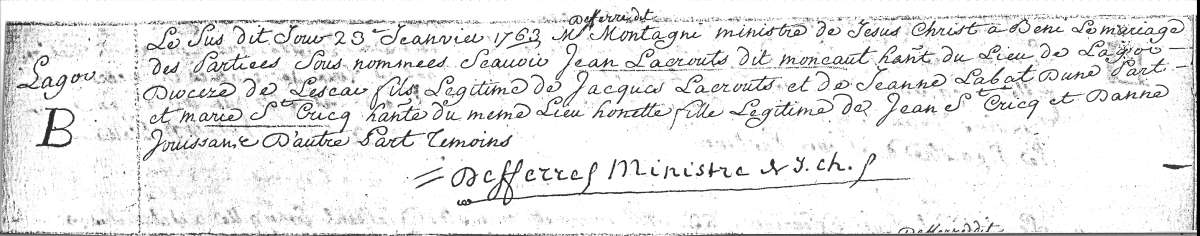 Defferre dit
Le Sus dit Jour 23e Jeanvier 1763 Mr Montagne ministre de Jesus Christ a Beni Le mariage
des Partiees Sous nommees Scavoir Jean Lacrouts dit moncaut hant du Lieu de Lagor
Dioceze de Lescar fils Legitime de Jacques Lacrouts et de Jeanne Labat Dune Part
et marie St Cricq hante du meme Lieu honette fille Legitime de Jean St Cricq et Danne
Jouissanne D'autre Part Temoins
Defferre Ministre d J. ch.
Lagor
B
Defferre dit